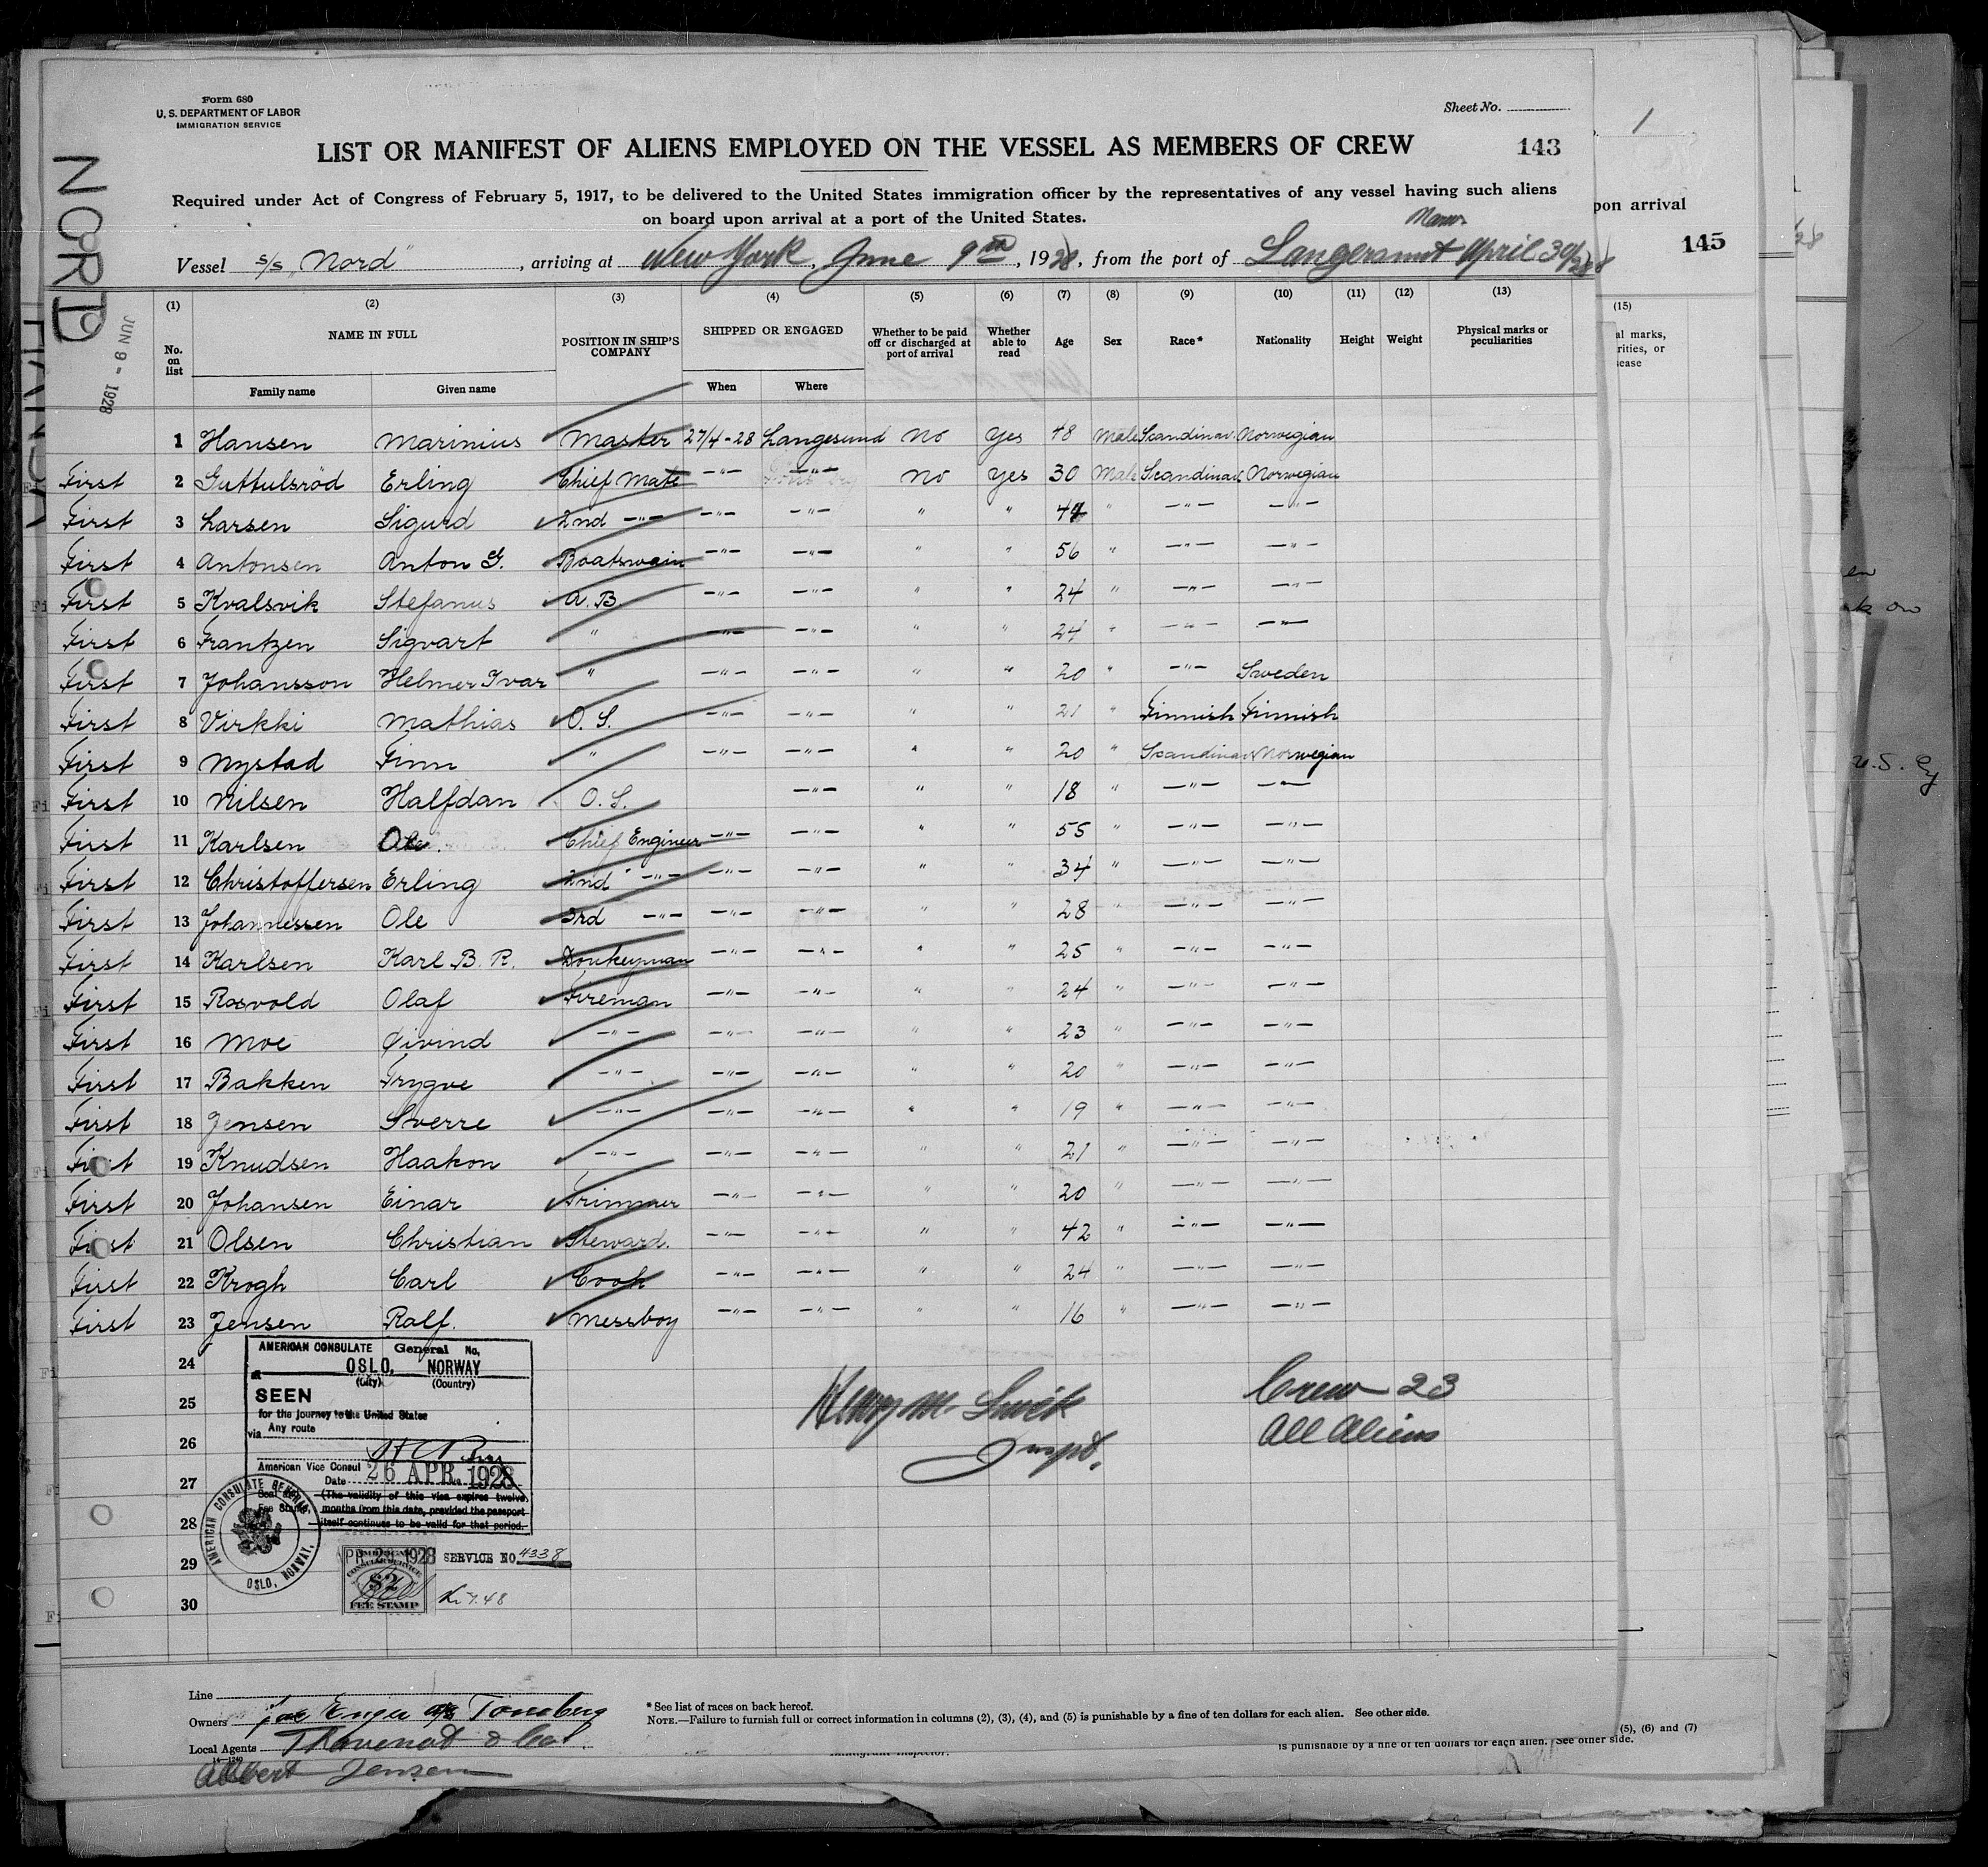 Form 680
U. S. DEPARTMENT OF LABOR
IMMIGRATION SERVICE
Sheet No.
LIST OR MANIFEST OF ALIENS EMPLOYED ON THE VESSEL AS MEMBERS OF CREW
143
Required under Act of Congress of February 5, 1917, to be delivered to the United States immigration officer by the representatives of any vessel having such aliens
on board upon arrival at a port of the United States.
Vessel s/s „Nord", arriving at New York, June 9th, 1928, from the port of April 30/28
NORD
JUN 9 - 1928
1
pon arrival
145
(1) (2) (3) (4) (5) (6) (7) (8) (9) (10) (11) (12) (13)
(15)
No. on list
NAME IN FULL
Family name Given name
POSITION IN SHIP'S COMPANY
SHIPPED OR ENGAGED
When Where
Whether to be paid off or discharged at port of arrival
Whether able to read
Age Sex Race* Nationality Height Weight
Physical marks or peculiarities
1 Hansen Marinius Master 27/4-28 Langesund No Yes 48 Male Scandinav. Norwegian
First 2 Guttulsröd Erling Chief Mate -"- -"- No Yes 30 Male Scandinav. Norwegian
First 3 Larsen Sigurd 2nd -"- -"- -"- " " 44 " -"- -"-
First 4 Antonsen Anton G. Boatswain -"- -"- " " 56 " -"- -"-
First 5 Kvalsvik Stefanus A.B. -"- -"- " " 24 " -"- -"-
First 6 Frantzen Sigvart " -"- -"- " " 24 " -"- -"-
First 7 Johansson Helmer Ivar " -"- -"- " " 20 " -"- Sweden
First 8 Virkki Mathias O.S. -"- -"- " " 21 " Finnish Finnish
First 9 Nystad Finn " -"- -"- " " 20 " Scandinav. Norwegian
First 10 Nilsen Halfdan O.S. -"- " " 18 " -"- -"-
First 11 Karlsen Ole. Chief Engineer -"- -"- " " 55 " -"- -"-
First 12 Christoffersen Erling 2nd -"- -"- -"- " " 34 " -"- -"-
First 13 Johannessen Ole 3rd -"- -"- -"- " " 28 " -"- -"-
First 14 Karlsen Karl B. R. Donkeyman -"- -"- " " 25 -"- -"-
First 15 Rosvold Olaf Fireman -"- -"- " " 24 " -"- -"-
First 16 Moe Øivind -"- -"- -"- " " 23 " -"- -"-
First 17 Bakken Trygve -"- -"- -"- " " 20 " -"- -"-
First 18 Jensen Sverre -"- -"- -"- " " 19 " -"- -"-
First 19 Knudsen Haakon -"- -"- -"- " " 21 " -"- -"-
First 20 Johansen Einar Trimmer -"- -"- " " 20 " -"- -"-
First 21 Olsen Christian Steward. -"- -"- " " 42 " -"- -"-
First 22 Krogh Carl Cook -"- -"- " " 24 " -"- -"-
First 23 Jensen Ralf. Messboy -"- -"- " " 16 " -"- -"-
24
25
26
27
28
29
30
AMERICAN CONSULATE General No.
OSLO, NORWAY
(City) (Country)
SEEN
for the journey to the United States
via Any route
American Vice Consul
Date 26 APR. 1928
(The validity of this visa expires twelve
months from this date, provided the passport
itself continues to be valid for that period.
AMERICAN CONSULATE GENERAL
OSLO, NORWAY.
1928 SERVICE NO 4338
$2
FEE STAMP
Kr 7.48
Inspt.
Crew 23
All Aliens
Line
Owners Tonsberg
Local Agents
14-1240
Jensen
* See list of races on back hereof.
NOTE.—Failure to furnish full or correct information in columns (2), (3), (4), and (5) is punishable by a fine of ten dollars for each alien. See other side.
(5), (6) and (7)
is punishable by a fine of ten dollars for each alien. See other side.
Immigrant Inspector.